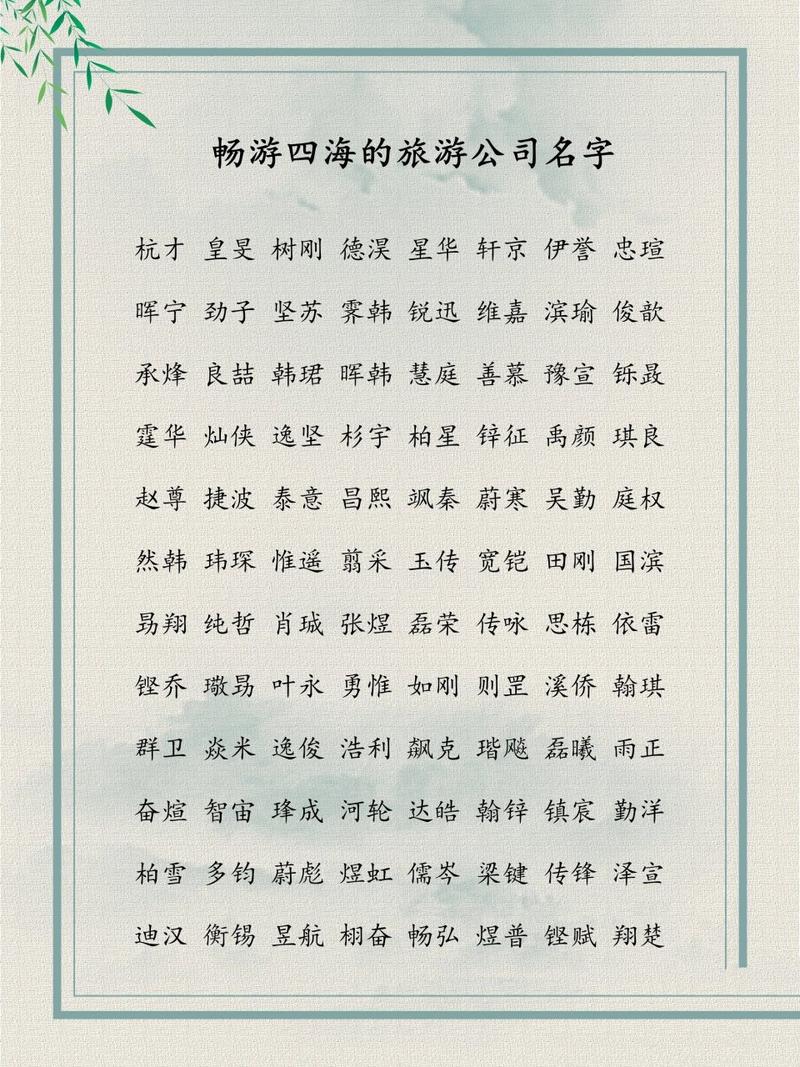 畅游四海的旅游公司名字
杭才 皇旻 树刚 德淏 星华 轩京 伊誉 忠瑄
晖宁 劲子 坚苏 霁韩 锐迅 维嘉 滨瑜 俊歆
承烽 良喆 韩珺 晖韩 慧庭 善慕 豫宣 铄晸
霆华 灿侠 逸坚 杉宇 柏星 锌征 禹颜 琪良
赵尊 捷波 泰意 昌熙 飒秦 蔚寒 吴勤 庭权
然韩 玮琛 惟遥 翦采 玉传 宽铠 田刚 国滨
昮翔 纯哲 肖珹 张煜 磊荣 传咏 思栋 依雷
铿乔 璥昮 叶永 勇惟 如刚 则罡 溪侨 翰琪
群卫 焱米 逸俊 浩利 飙克 瑎飚 磊曦 雨正
奋煊 智宙 琒成 河轮 达皓 翰锌 镇宸 勤洋
柏雪 多钧 蔚彪 煜虹 儒岑 梁键 传锋 泽宣
迪汉 衡锡 昱航 栩奋 畅弘 煜普 铿赋 翔楚